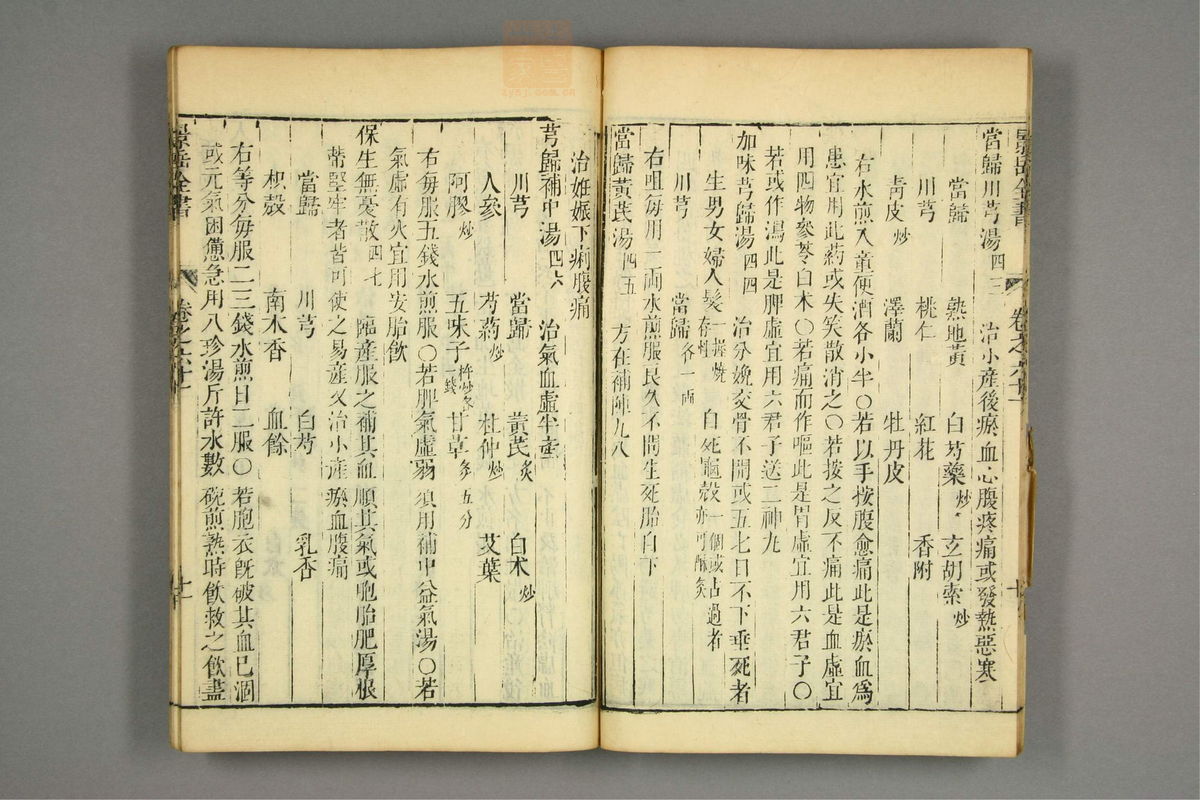 景岳全書 卷之六十一 十
當歸川芎湯 四三 治小產後瘀血心腹疼痛或發熱惡寒
當歸 熟地黃 白芍藥炒 玄胡索炒
川芎 桃仁 紅花 香附
靑皮炒 澤蘭 牡丹皮
右水煎入童便酒各小半○若以手按腹愈痛此是瘀血爲
患宜用此葯或失笑散消之○若按之反不痛此是血虛宜
用四物參苓白术○若痛而作嘔此是胃虛宜用六君子○
若或作瀉此是脾虛宜用六君子送二神丸
加味芎歸湯 四四 治分娩交骨不開或五七日不下垂死者
生男女婦人髮一握燒存性 自死龜殼一個或占過者亦可酥炙
川芎 當歸各一兩
右咀每用一兩水煎服良久不問生死胎自下
當歸黃芪湯 四五 方在補陣九八
治姙娠下痢腹痛
芎歸補中湯 四六 治氣血虛半產
川芎 當歸 黃芪炙 白术炒
人參 芍葯炒 杜仲炒 艾葉
阿膠炒 五味子杵炒各一錢 甘草炙五分
右每服五錢水煎服○若脾氣虛弱須用補中益氣湯○若
氣虛有火宜用安胎飲
保生無憂散 四七 臨產服之補其血順其氣或胞胎肥厚根
蒂堅牢者皆可使之易產又治小產瘀血腹痛
當歸 川芎 白芍 乳香
枳殼 南木香 血餘
右等分每服二三錢水煎日二服○若胞衣旣破其血已涸
或元氣困憊急用八珍湯斤許水數碗煎熟時飲救之飲盡
景岳全書 卷之六十一 十一